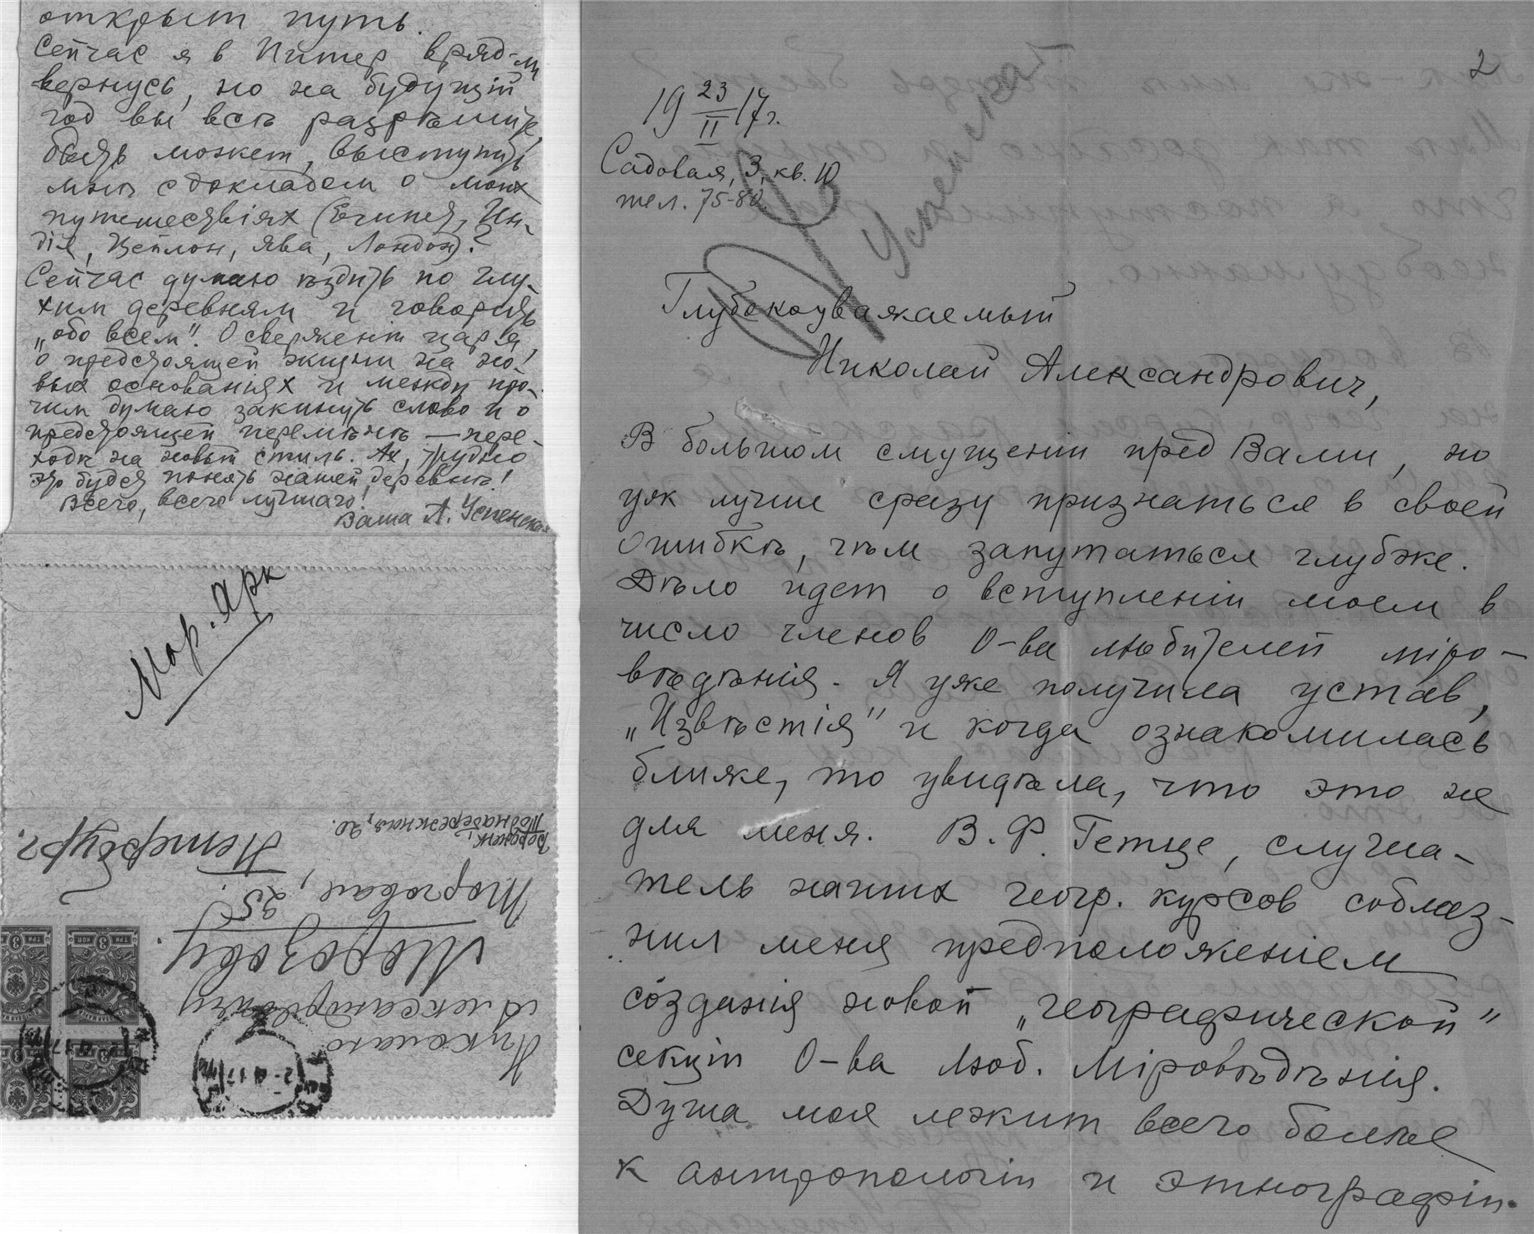 открыт путь.
Сейчас я в Питер вряд-ли
вернусь, но на будущій
год вы всѣ разрѣшите,
быть может, выступить
мнѣ с докладом о моих
путешествіях (Египет, Ин-
дія, Цейлон, Ява, Лондон)?
Сейчас думаю ѣздить по глу-
хим деревням и говорить
„обо всем". О сверженіи царя
о предстоящей жизни на но-
вых основаніях и между про-
чим думаю закинуть слово и о
предстоящей перемѣнѣ — пере-
ходѣ на новый стиль. Ах, трудно
это будет понять нашей деревнѣ!
Всего, всего лучшаго!
Ваша А. Успенская
Мор. Арх
Николаю
Александровичу
Морозову
Торговая, 25.
Петербург.
Воронеж,
Поднабережная, 20.
2
19 23/II 17 г.
Садовая, 3, кв. 10
тел. 75-80
Успенская
Глубокоуважаемый
Николай Александрович,
В большом смущеніи пред Вами, но
уж лучше сразу признаться в своей
ошибкѣ, чѣм запутаться глубже.
Дѣло идет о вступленіи моем в
число членов О-ва любителей міро-
вѣдѣнія. Я уже получила устав,
„Извѣстія" и когда ознакомилась
ближе, то увидѣла, что это не
для меня. В. Ф. Гетце, слуша-
тель наших геогр. курсов соблаз-
нил меня предположеніем
созданія новой „географической"
секціи О-ва Люб. Міровѣдѣнія.
Душа моя лежит всего болѣе
к антропологіи и этнографіи.